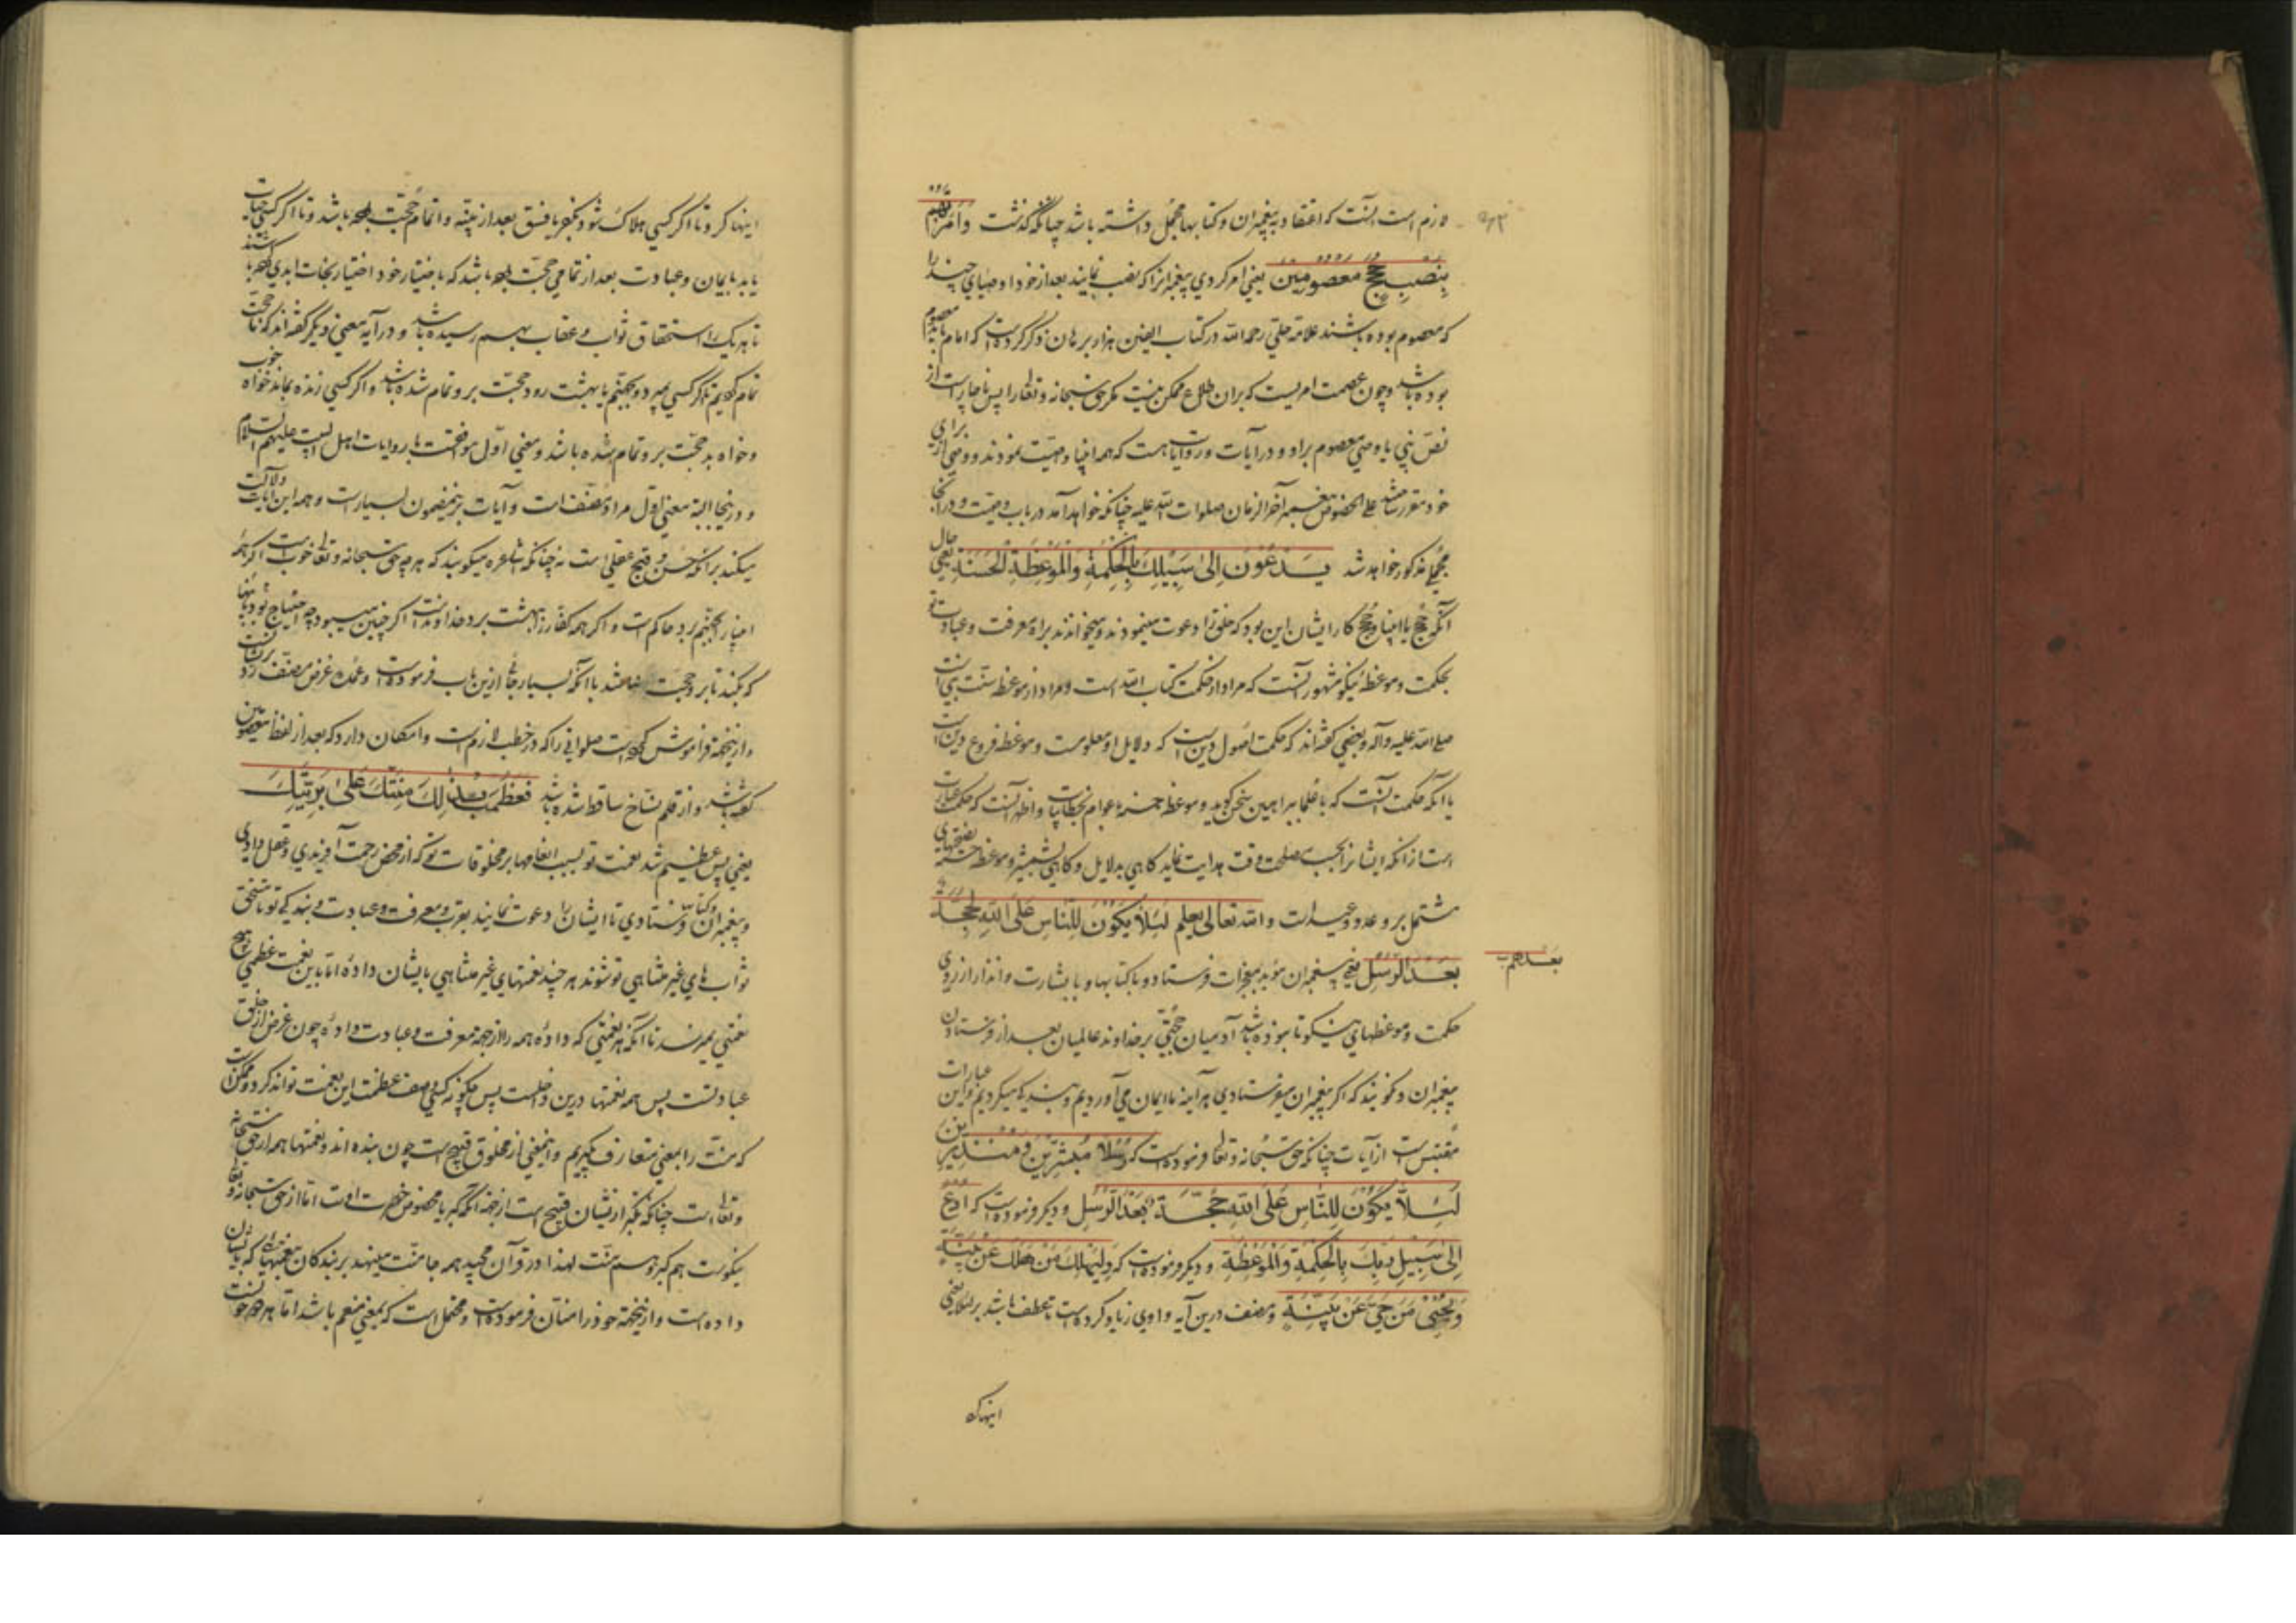 لازم است آنست که اعتقاد به پیغمبران و کتابها مجمل داشته باشد چنانکه گذشت وامرتهم
بنصب حجج معصومین یعنی امر کردی پیغمبرانرا که نصب نمایند بعد از خود اوصیای چند را
که معصوم بوده باشند علامه حلی رحمه الله در کتاب الفین هزار برهان ذکر کرده است که امام باید معصوم
بوده باشد و چون عصمت امریست که بران اطلاع ممکن نیست مگر حق سبحانه و تعالی را پس ناچار است از
نص نبی یا وصی معصوم براو و در آیات و روایات هست که همه انبیا وصیت نمودند و وصی از برای
خود مقرر علی الخصوص پیغمبر آخر الزمان صلوات الله علیه چنانکه خواهد آمد در باب وصیت و در آنجا
مجملی مذکور خواهد شد یدعون الی سبیلک بالحکمة والموعظة الحسنة یعنی حال
آنکه حجج یا انبیا و حجج کار ایشان این بود که خلق را دعوت مینمودند و میخواندند براه معرفت و عبادت تو
بحکمت و موعظه نیکو مشهور آنست که مراد از حکمت کتاب الله است و مراد از موعظه سنت نبی است
صلی الله علیه و آله و بعضی گفته‌اند که حکمت اصول دین است که دلایل او معلوست و موعظه فروع دین است
یا آنکه حکمت آنست که با علما ببراهین سخن گوید و موعظه حسنه با عوام بخطابیات و اظهر آنست که حکمت عبارت
است از آنکه ایشانرا بحسب مصلحت وقت هدایت نماید گاهی بدلایل و گاهی بشمشیر و موعظه حسنه نصیحتهای
مشتمل بر وعد و وعید است والله تعالی یعلم لئلا یکون للناس علی الله حجة
بعد الرسل یعنی پیغمبران مؤید بمعجزات فرستاد و با کتابها و با بشارت و انذار از روی
بعدهم
حکمت و موعظهای نیکو تا نبوده باشد آدمیان حجتی بر خداوند عالمیان بعد از فرستادن
پیغمبران و نگویند که اگر پیغمبران میفرستادی هر آینه ما ایمان می آوردیم و بندگی میکردیم و این عبارات
مقتبس است از آیات چنانکه حق سبحانه و تعالی فرموده است که رسلا مبشرین ومنذرین
لئلا یکون للناس علی الله حجة بعد الرسل و دیگر فرموده است که ادع
الی سبیل ربک بالحکمة والموعظة و دیگر فرموده است که ولیهلک من هلک عن بینة
ویحیی من حی عن بینة و مصنف درین آیه واوی زیاد کرده است تا عطف باشد بر لئلا یعنی
اینها کرد
اینها کرد تا اگر کسی هلاک شود بکفر یا فسق بعد از بینه و اتمام حجت باشد و تا اگر کسی حیات
یابد بایمان و عبادت بعد از تمامی حجت باشد که باختیار خود اختیار نجات ابدی
تا هر یک را استحقاق ثواب و عقاب بهم رسیده باشد و در آیه معنی دیگر گفته‌اند که ما حجت
تمام کردیم تا اگر کسی بمیرد و بجهنم یا بهشت رود حجت برو تمام شده باشد و اگر کسی زنده بماند خواه خوب
و خواه بد حجت برو تمام شده باشد و معنی اول موافقست با روایات اهل البیت علیهم السلام
و در اینجا البته معنی اول مراد مصنف است و آیات برینمضمون بسیار است و همه این آیات دلالت
میکند برانکه حسن و قبح عقلی است نه چنانکه اشاعره میگویند که هر چه حق سبحانه و تعالی خوب است اگر همه
انبیا را بجهنم برد حاکم است و اگر همه کفار را بهشت برد خداوند است اگر چنین میبود چه احتیاج بود باینها
که بکند تا برو حجت نباشد با آنکه بسیار جا ازین باب فرموده است و عمده غرض مصنف رد
و ازینجهة فراموش کرده است صلواتی را که در خطب لازم است و امکان دارد که بعد از لفظ معصومین
گفته باشد و از قلم نساخ ساقط شده باشد فعظمت بذلک منتک علی بریتک
یعنی پس عظیم شد نعمت تو بسبب انعامها بر مخلوقات تو که از محض رحمت آفریدی و عقل دادی
و پیغمبران و کتاب فرستادی تا ایشان را دعوت نمایند بقرب و معرفت و عبادت و بندگی تو تا مستحق
ثواب های غیر متناهی تو شوند هر چند نعمتهای غیر متناهی بایشان داده اما باین نعمت عظمی هیچ
نعمتی نمیرسد تا آنکه هر نعمتی که داده همه را از جهة معرفت و عبادت داده چون غرض از خلق
عبادتست پس همه نعمتها درین داخلست پس چگونه کسی وصف عظمت این نعمت تواند کرد و ممکن است
که منت را بمعنی متعارف بگیریم و اینمعنی از مخلوق قبیح است چون بنده اند و نعمتها همه از حق سبحانه
و تعالی است چنانکه تکبر از ایشان قبیح است ازینجهة آنکه کبریا مخصوص حضرت اوست اما از حق سبحانه و تعالی
نیکوست هم کبر و هم منت لهذا در قرآن مجید همه جا منت مینهد بر بندگان بنعمتها که بایشان
داده است و ازینجهة خود را منان فرموده است و محتمل است که بمعنی منعم باشد اما